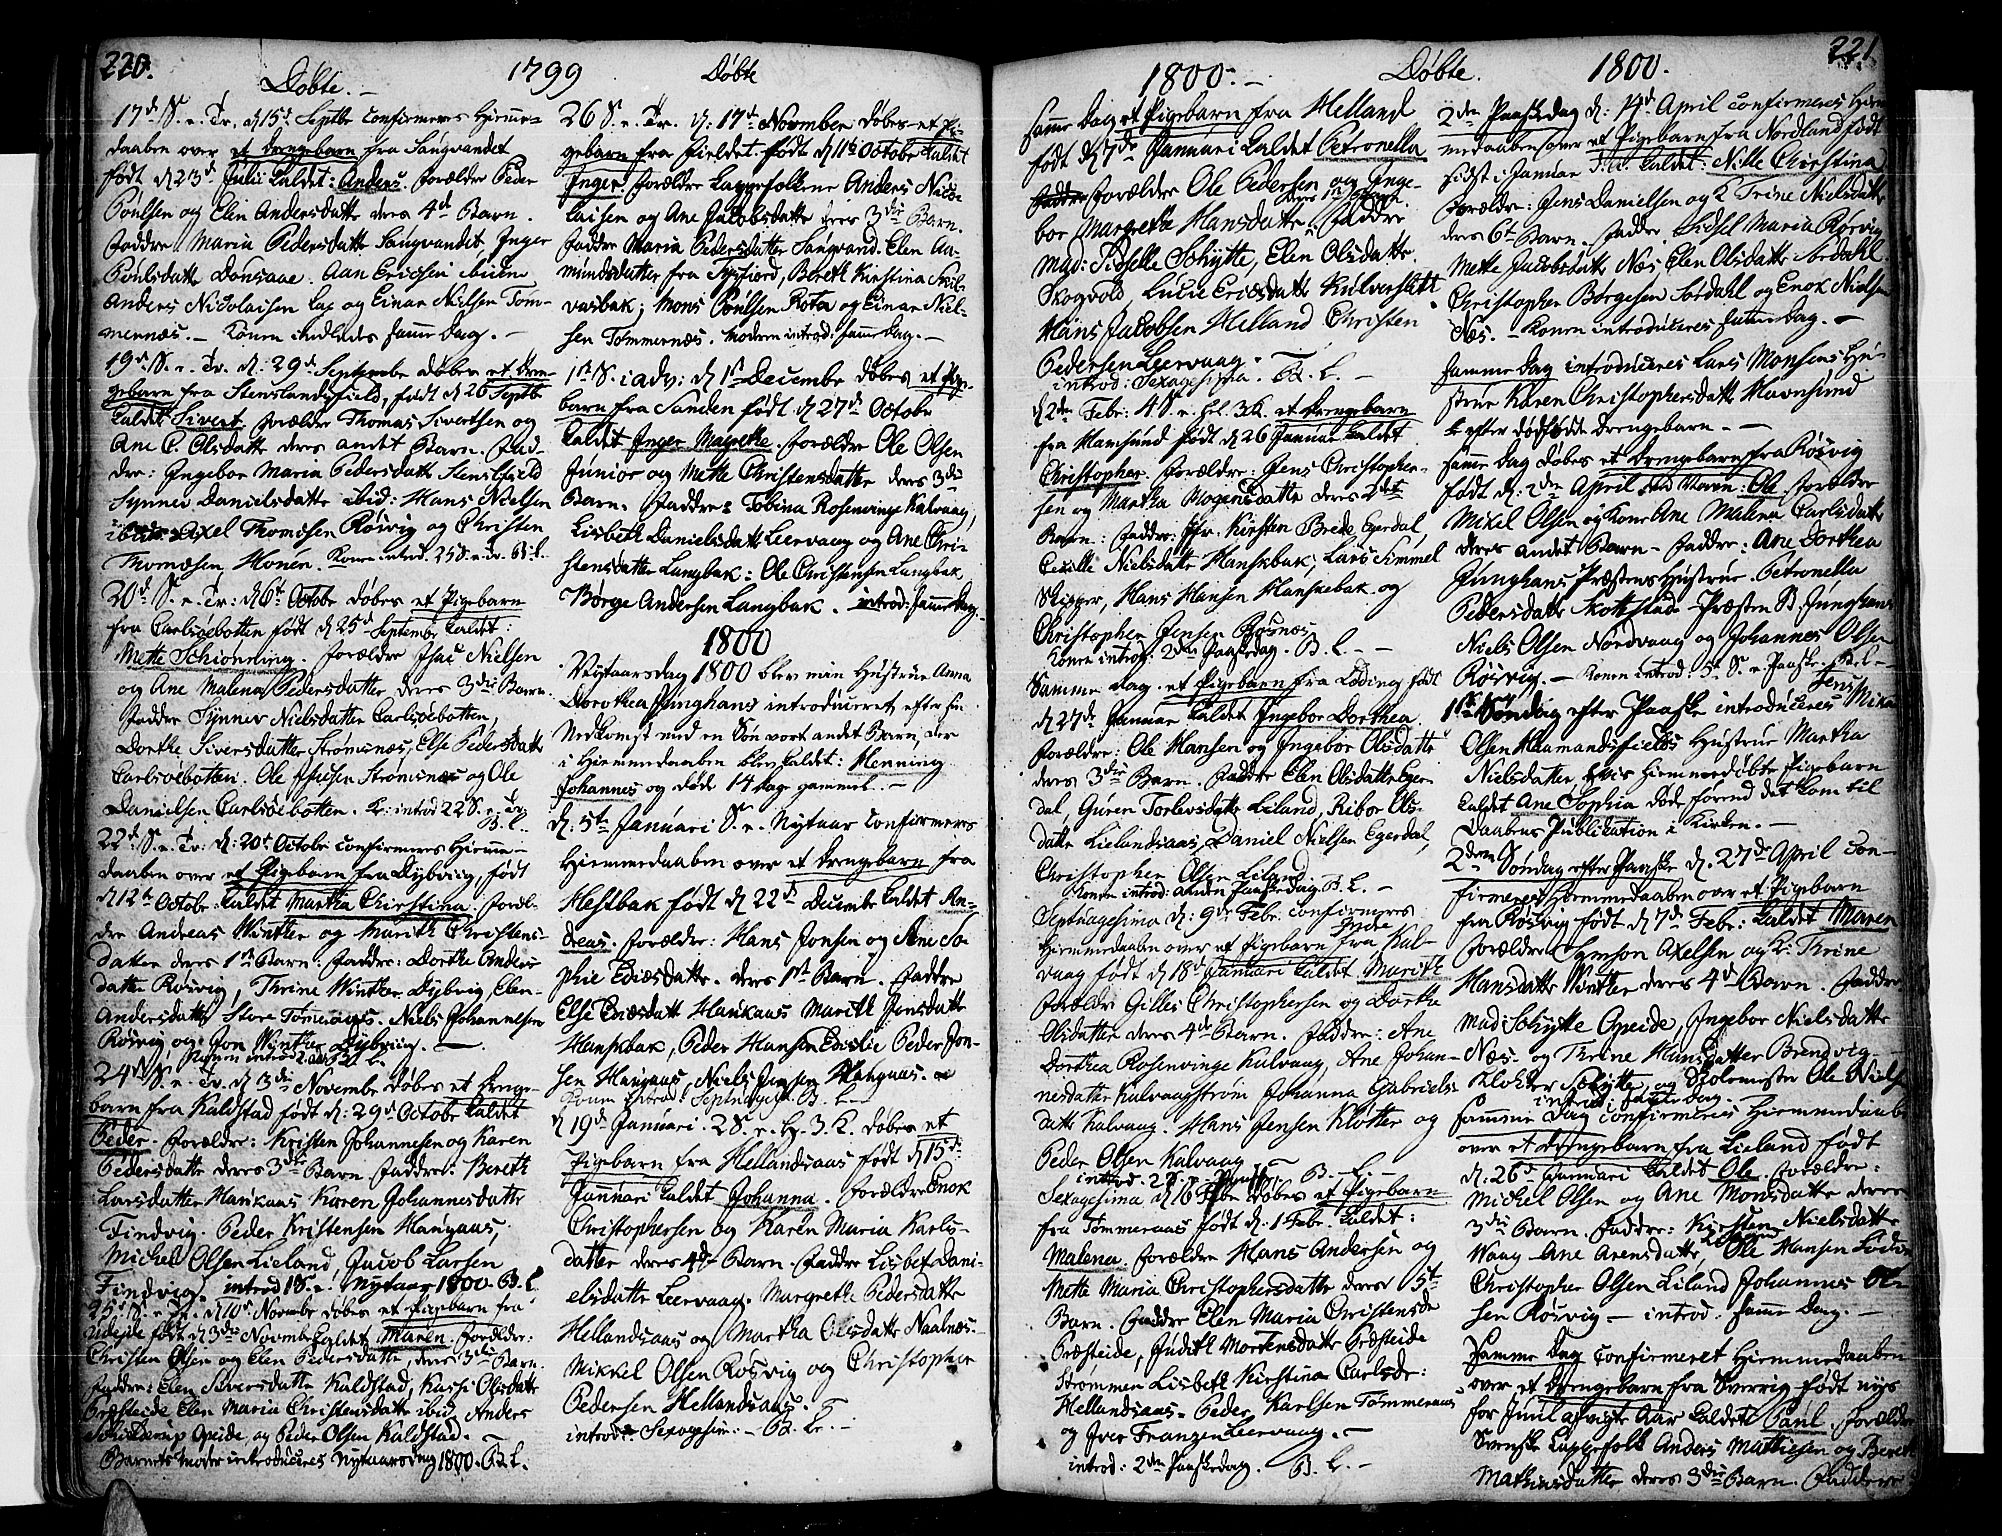 220.
Døbte. -
1799
Døbte
17d S. e. Tr. d 15d Septbr Confirmeres Hiemme-
daaben over et Drengebarn fra Sangvandet
født d 23d Julii kaldet: Anders. Forældre Peder
Poulsen og Elen Andersdatter deres 4d Barn.
Faddre: Maria Pedersdatter Sangvandet Inger
Poulsdatt Aan Ericksen
Anders Nicolaisen Lap og Einar Nielsen Tom-
mernæs. - Konen indledes samme Dag. -
19d S. e. Tr. d: 29d Septembr døbes et Dren-
gebarn fra Stenslandsfield, født d 26 Septbr
kaldet Sivert Forældre Thomas Sivertsen og
Ane P. Olsdatter deres andet Barn. Fad-
dre: Ingebor Maria Pedersdatter Stenslfield
Synnev Danielsdatter ibid: Hans Nielsen
ibid: Axel Thomsen Røsvig og Christen
Thomæsen Honen. Konen introd. 25 S. e. Tr. B. L.
20d S. e. Tr: d 6t Octobr døbes et Pigebarn
fra Carlsøebotten født d 25d Septembr kaldet:
Mette Schionning. Forældre Isac Nielsen
og Ane Malena Pedersdatter deres 3die Barn.
Faddre Synnev Nielsdatter Carlsøebotten,
Dorthe Siversdatter Strømsnes, Else Pedersdatter
Carlsøebotten. Ole Strømsnes og Ole
Danielsen Carlsøebotten. K: introd 22 S. e. Tr.
B. L.
22d S. e. Tr: d: 20t Octobr confirmeres Hiemme-
daaben over et Pigebarn fra Dybvig, født
d 12t Octobr: kaldet Martha Christina. Foræl-
dre Andreas Winther og Marith Christens-
datter deres 1ste Barn: Faddre: Dorthe Anders
datter Røsvig, Thrine Winther Dybvig, Elen
Andersdatter Store Tømmernes. Niels Johannesen
Røsvig og Jon Winther Dybvig. -
24d S. e. Tr. d 3die Novembr døbes et Drenge-
barn fra Kaldstad født d: 29d Octobr kaldet
Peder. Forældre: Kristen Johannesen og Karen
Pedersdatter deres 3die Barn Faddre: Bereth
Larsdatter Haukaas Karen Johannesdatter
Findvig. Peder Kristensen Haugaas,
Michel Olsen Lieland, Jacob Larsen
Findvig. introd 1 S. e. Nytaar 1800. B. L.
25d S. e. Tr. d 10d Novembr døbes et Pigebarn fra
født d 3die Novembr kaldet Maren. Forældre:
Christen Olsen og Elen Pedersdatter, deres 3die Barn.
Faddre: Elen Siversdatter Kaldstad, Karsi Olsdatter
Præsteide Elen Maria Christensdatter ibid. Anders
Schielderup Opeide, og Peder Olsen Kaldstad. -
Barnets Moder introduceres Nytaarsdag 1800. B. L.
26 S. e. Tr. d: 17d November døbes et Pi-
gebarn fra Fieldet født d 11te October kaldet
Inger. Forældre Lappefolkene Anders Nico-
laisen og Ane Jacobsdatter deres 3die Barn.
Faddre Maria Pedersdatter Sangvand. Elen Aa-
mundsdatter fra Sepfiord, Bereth Kirstina
Mons Poulsen Kota og Einar Niel-
sen Tømmernæs. Moderen introd: samme Dag. -
1st S. i adv: d 1st Decembr døbes et Pige-
barn fra Sanden født d 27d Octobr
kaldet Inger Magrethe. Forældre Ole Olsen
Junior og Mette Christensdatter deres 3die
Barn. Faddre: Tobina Rosenvinge Kalvaag,
Lisbeth Danielsdatter Leervaag og Ane Chri-
stensdatter Langbak: Ole Christensen Langbak
Børge Andersen Langbak. introd: samme Dag. -
1800
Nytaarsdag 1800 blev min Hustrue Anna
Dorothea Junghans introduceret efter sin
Nedkomst med en Søn vort andet Barn, der
i Hiemmedaaben blev kaldet: Henning
Johannes og døde 14 Dage gammel. -
d: 5te Januari S. e. Nytaar Confirmeres
Hiemmedaaben over et Drengebarn fra
Hestbak født d 22d Decembr kaldet An-
dreas. Forældre: Hans Jonsen og Ane So-
phie Ericsdatter. deres 1st Barn. Faddre
Else Ericsdatt Haukaas Marith Jonsdatter
Hanskbak, Peder Hansen Peder Jon-
sen Haugaas, Niels Jensen Haugaas. -
Septuages: B. L. -
d 19d Januari. 2 S. e. H. 3. K. døbes et
Pigebarn fra Hellandsaas født d 15d
Januari kaldet Johanna. Forældre Enok
Christophersen og Karen Maria Karls-
datter deres 4de Barn. Faddre Lisbet Dani-
elsdatter Leervaag. Margrethe Pedersdatter
Hellandsaas og Martha Olsdatter Naalnæs.
Mikkel Olsen Røsvig og Christopher
Pedersen Hellandsaas.
introd: Sexagesim: - B. L. -
1800. -
Døbte.
1800.
221
samme Dag et Pigebarn fra Helland
født d 7de Januari kaldet Petronella
Forældre Ole Pedersen og Inge-
bor Margrethe Hansdatter deres 1st Barn. Faddre
Mad: Sidselle Schytte, Elen Olsdatter
Skogvold, Lucie Ericsdatter Kulverslett
Hans Jacobsen Helland Christen
Pedersen Leervaag.
introd: Sexagesima. B. L. -
d 2den Febr: 4 S. e. Hel. 3 K. et Drengebarn
fra Hamsund født d 26 Januar kaldet
Christopher. Forældre: Jens Christopher-
sen og Martha Mogensdatter deres 2det
Barn: Faddre: Jfr. Kirsten Brede Egerdal,
Cecille Nielsdatter Hanskbak; Lars Simmel
Skipper, Hans Hansen Hanskebak og
Christopher Jensen Rosnæs
Konen introd: 2den Paaskedag. B. L. -
Samme Dag et Pigebarn fra Løding født
d 27de Januar kaldet Ingebor Dorthea.
Forældre: Ole Hansen og Ingebor Olsdatter
deres 3die Barn. Faddre Elen Olsdatter Eger-
dal, Guren Torlevsdatter Liland, Ribor Ols-
datter Lielandsaas, Daniel Nielsen Egerdal,
Christopher Olsen Liland.
Konen introd: anden Paaskedag. B. L. -
Septuagesima d: 9de Febr. confirmeres
Hiemmedaaben over et Pigebarn fra Indre Kal-
vaag født d 18d Januari kaldet Marith
Forældre Gilles Christophersen og Dorthea
Olsdatter deres 4de Barn. Faddre: Ane
Dorthea Rosenvinge Kalvaag, Ane Johan-
nesdatter Kalvaagstrøm Johanna Gabriels-
datter Kalvaag. Hans Jensen Kløtter og
Peder Olsen Kalvaag
B. L. -
Sexagesima d 16 Febr døbes et Pigebarn
fra Tømmeraas født d: 1 Febr. kaldet:
Malena. Forældre Hans Andersen og
Mette Maria Christophersdatter deres 5te
Barn. Faddre Elen Maria Christensdr
Præsteide, Judith Mortensdatter Præsteide
Strømmen Lisbeth Kirstina Carlsdr:
Hellandsaas. Peder Karlsen Tømmeraas
og Iver Franzen Leervaag. -
introd: 2den Paaskedag. B. L. -
2den Paaskedag d: 14d April Confirmeres Hiem-
medaaben over et Pigebarn fra Nordland født
sidst i Januar kaldet: Nille Christina
Forældre: Jens Danielsen og K Trine Nielsdatter
deres 6te Barn. Faddre. Sidsel Maria Rørvig
Mette Jacobsdatter Næs, Elen Olsdatter Sørdahl
Christopher Børgesen Sørdahl og Enok Nielsen
Næs. - Konen introduceres samme Dag. -
Samme Dag introduceres Lars Monsens Hu-
strue Karen Christophersdatter Havnsund
efter dødfødte Drengebarn. -
Samme Dag døbes et Drengebarn fra Røsvig
født d: 2den April kaldet: Ole Forældre
Mikel Olsen og Kone Ane Malena Carlsdatter
deres andet Barn - Faddre: Ane Dorthea
Junghans Præstens Hustrue, Petronella
Pedersdatter Skotstad - Præsten B. Junghans
Niels Olsen Nordvaag og Johannes Olsen
Røsvig. - Konen introd: 5t S. e. Paaske. B. L. -
1ste Søndag efter Paaske introduceres Jens Mikal
Olsen Haamandsfields Hustrue Martha
Nielsdatter, hvis Hiemmedøbte Pigebarn
kaldet Ane Sophia døde førend det kom til
Daabens Publikation i Kirken. -
2den Søndag efter Paaske d. 27de April con-
firmeres Hiemmedaaben over et Pigebarn
fra Røsvig født d 7de Febr: kaldet Maren
Forældre Symson Axelsen og K: Thrine
Hansdatter Winther deres 4de Barn. Faddre
Mad Schytte Opeide, Ingebor Nielsdatter
Næs. og Thrine Hansdatter Brendvig
Klokker Schytte, og Skolemester Ole Niels
introd: samme Dag.
Samme Dag confirmeres Hiemmedaaben
over et Drengebarn fra Lieland født
d. 26d Januari kaldet Ole. Forældre:
Michel Olsen og Ane Monsdatter deres
3die Barn. Faddre: Kirsten Nielsdatter
Waag Ane Arensdatter, Ole Hansen
Christopher Olsen Liland Johannes Ol-
sen Rørvig - introd. samme Dag. -
Samme Dag Confirmeret Hiemmedaaben
over et Drengebarn fra Sverrig født nys
før Juul afvigte Aar kaldet: Paul. Forældre
Svenske Lappefolk Anders Mathiesen og Beret
Mathiasdatter deres 3die Barn. Faddere